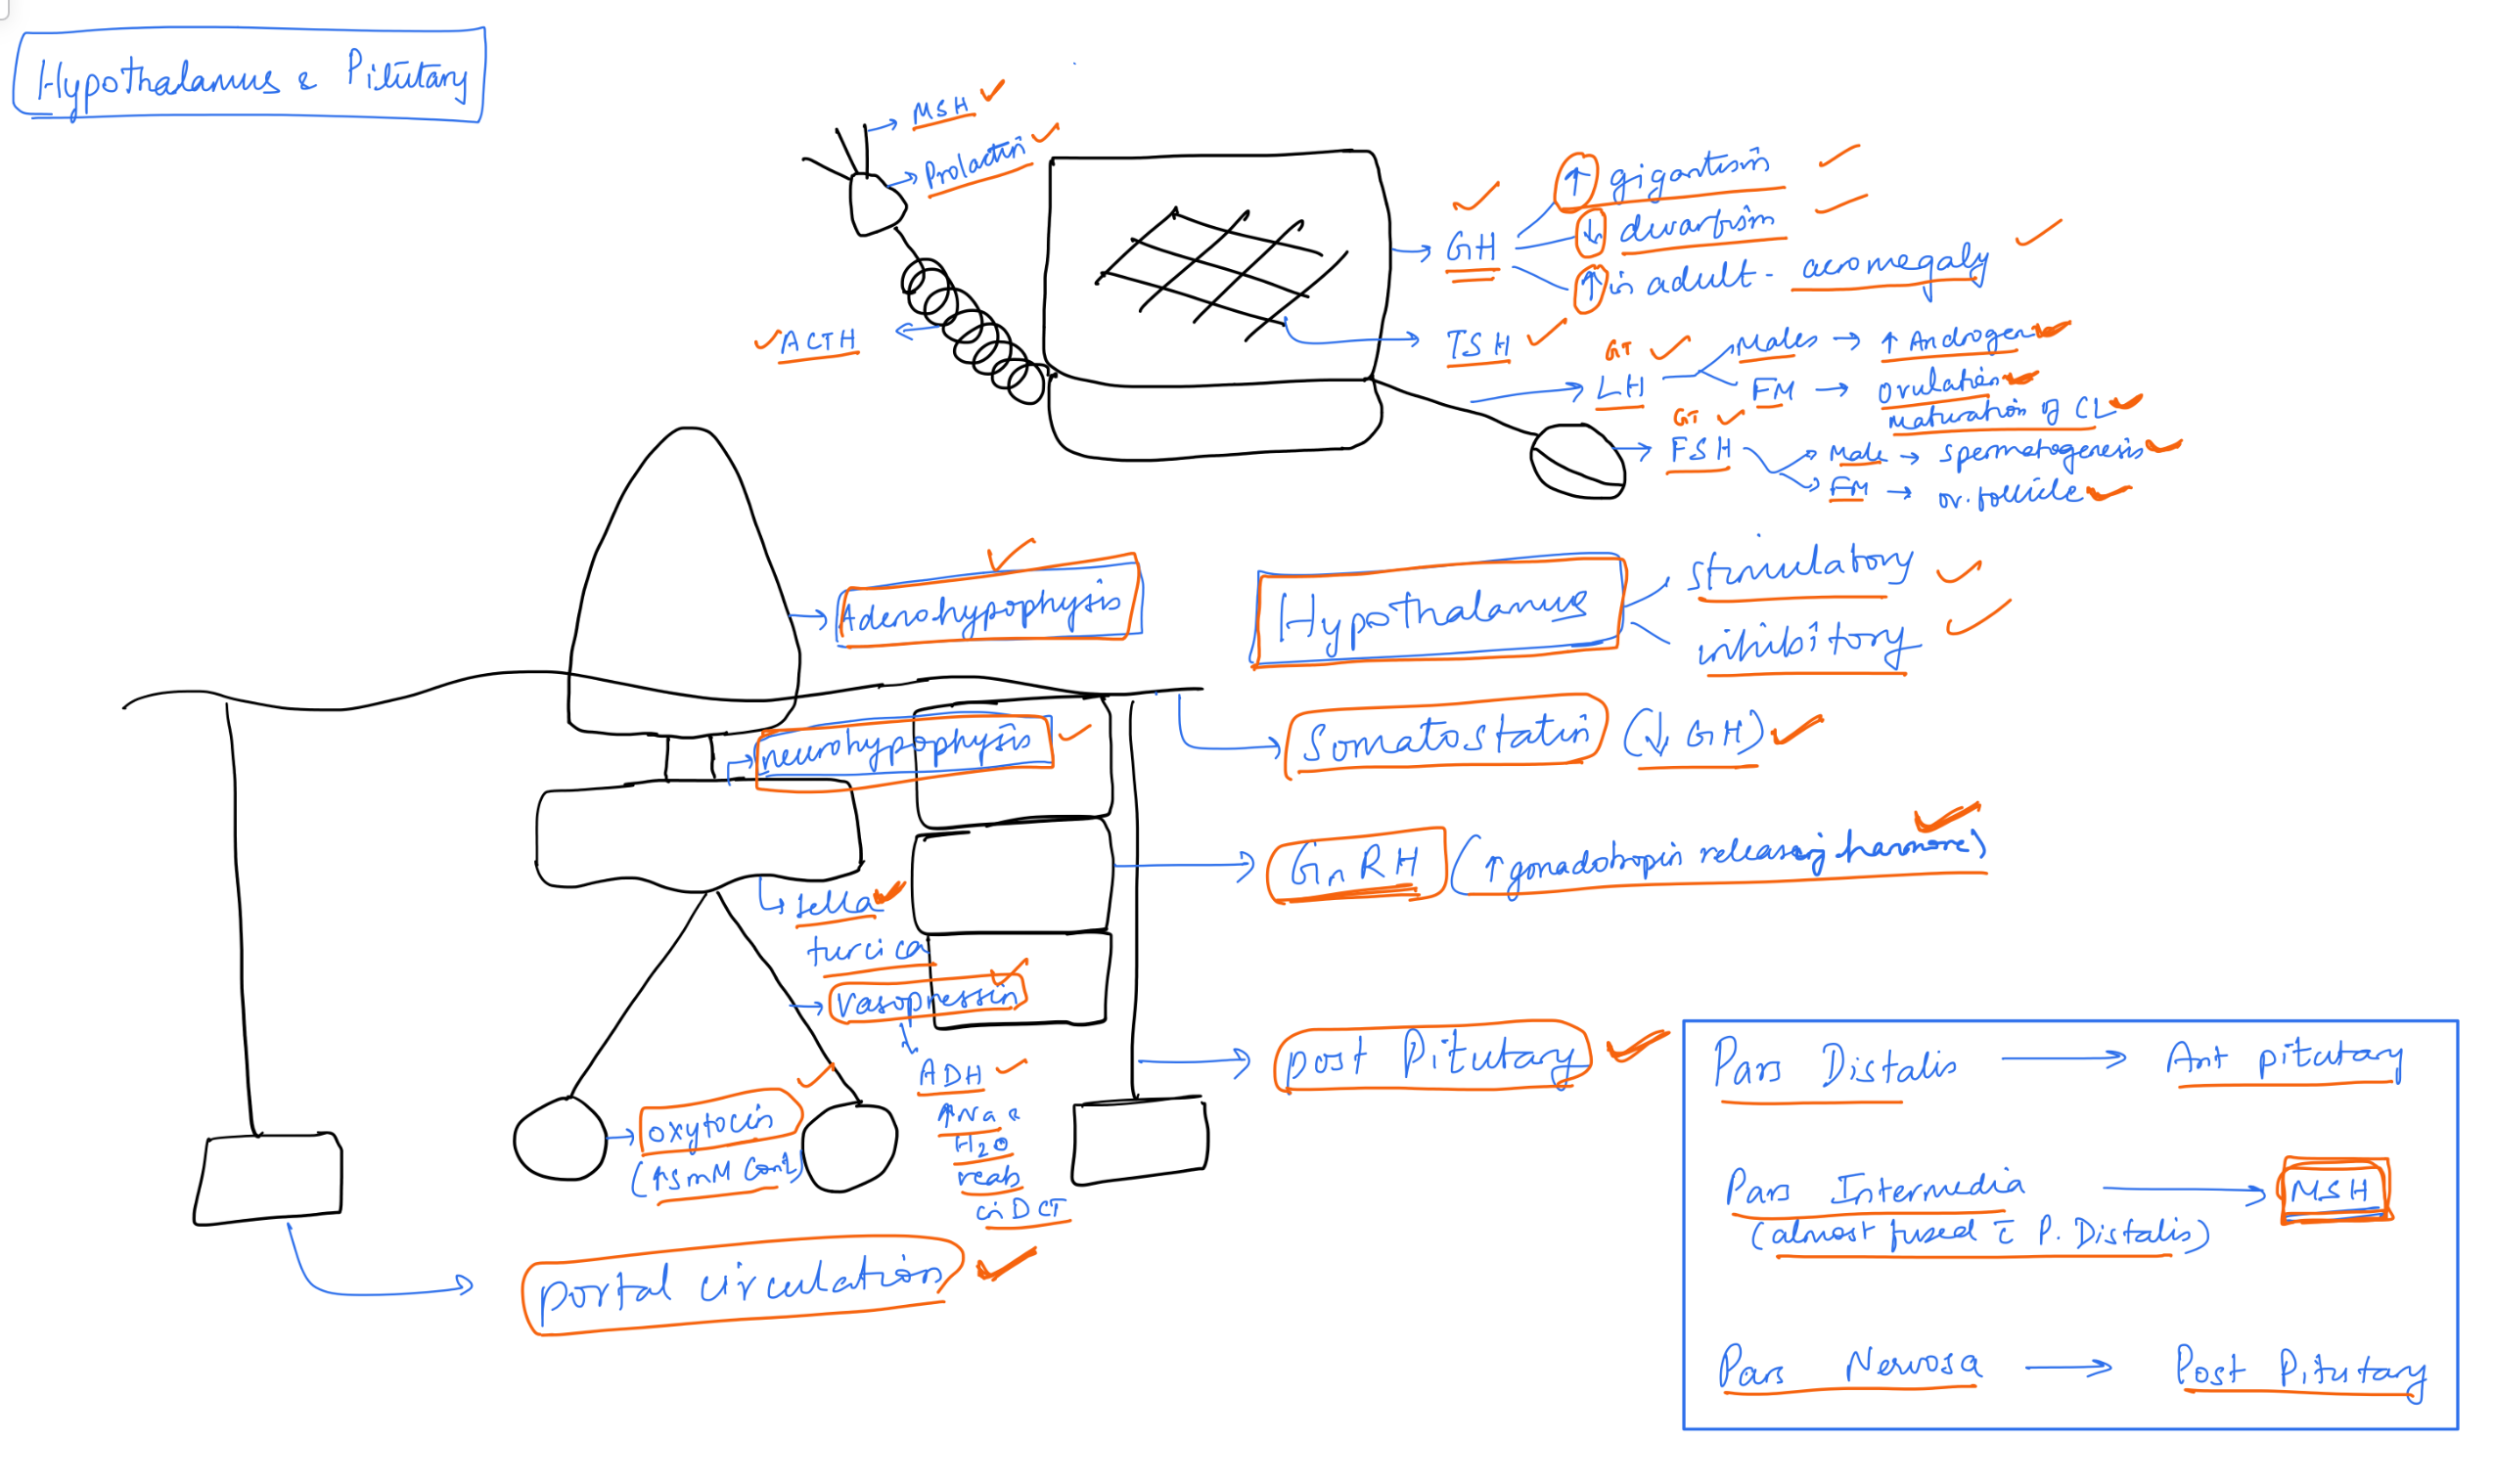 Hypothalamus & Pitutary
MSH
Prolactin
ACTH
GH
↑ gigantism
↓ dwarfism
↑ in adult - acromegaly
TSH
GT
LH
Males → ↑ Androgen
FM → ovulation
maturation of CL
GT
FSH
Male → spermatogenesis
FM → ov. follicle
Adenohypophysis
Hypothalamus
stimulatory
inhibitory
neurohypophysis
Somatostatin (↓ GH)
GnRH (↑ gonadotropin releasing hormone)
sella
turcica
Vasopressin
ADH
↑ Na &
H2O
reab
in DCT
oxytocin
(↑ SmM Cont)
post Pitutary
portal circulation
Pars Distalis → Ant pitutary
Pars Intermedia → MSH
(almost fused c̄ P. Distalis)
Pars Nervosa → Post Pitutary